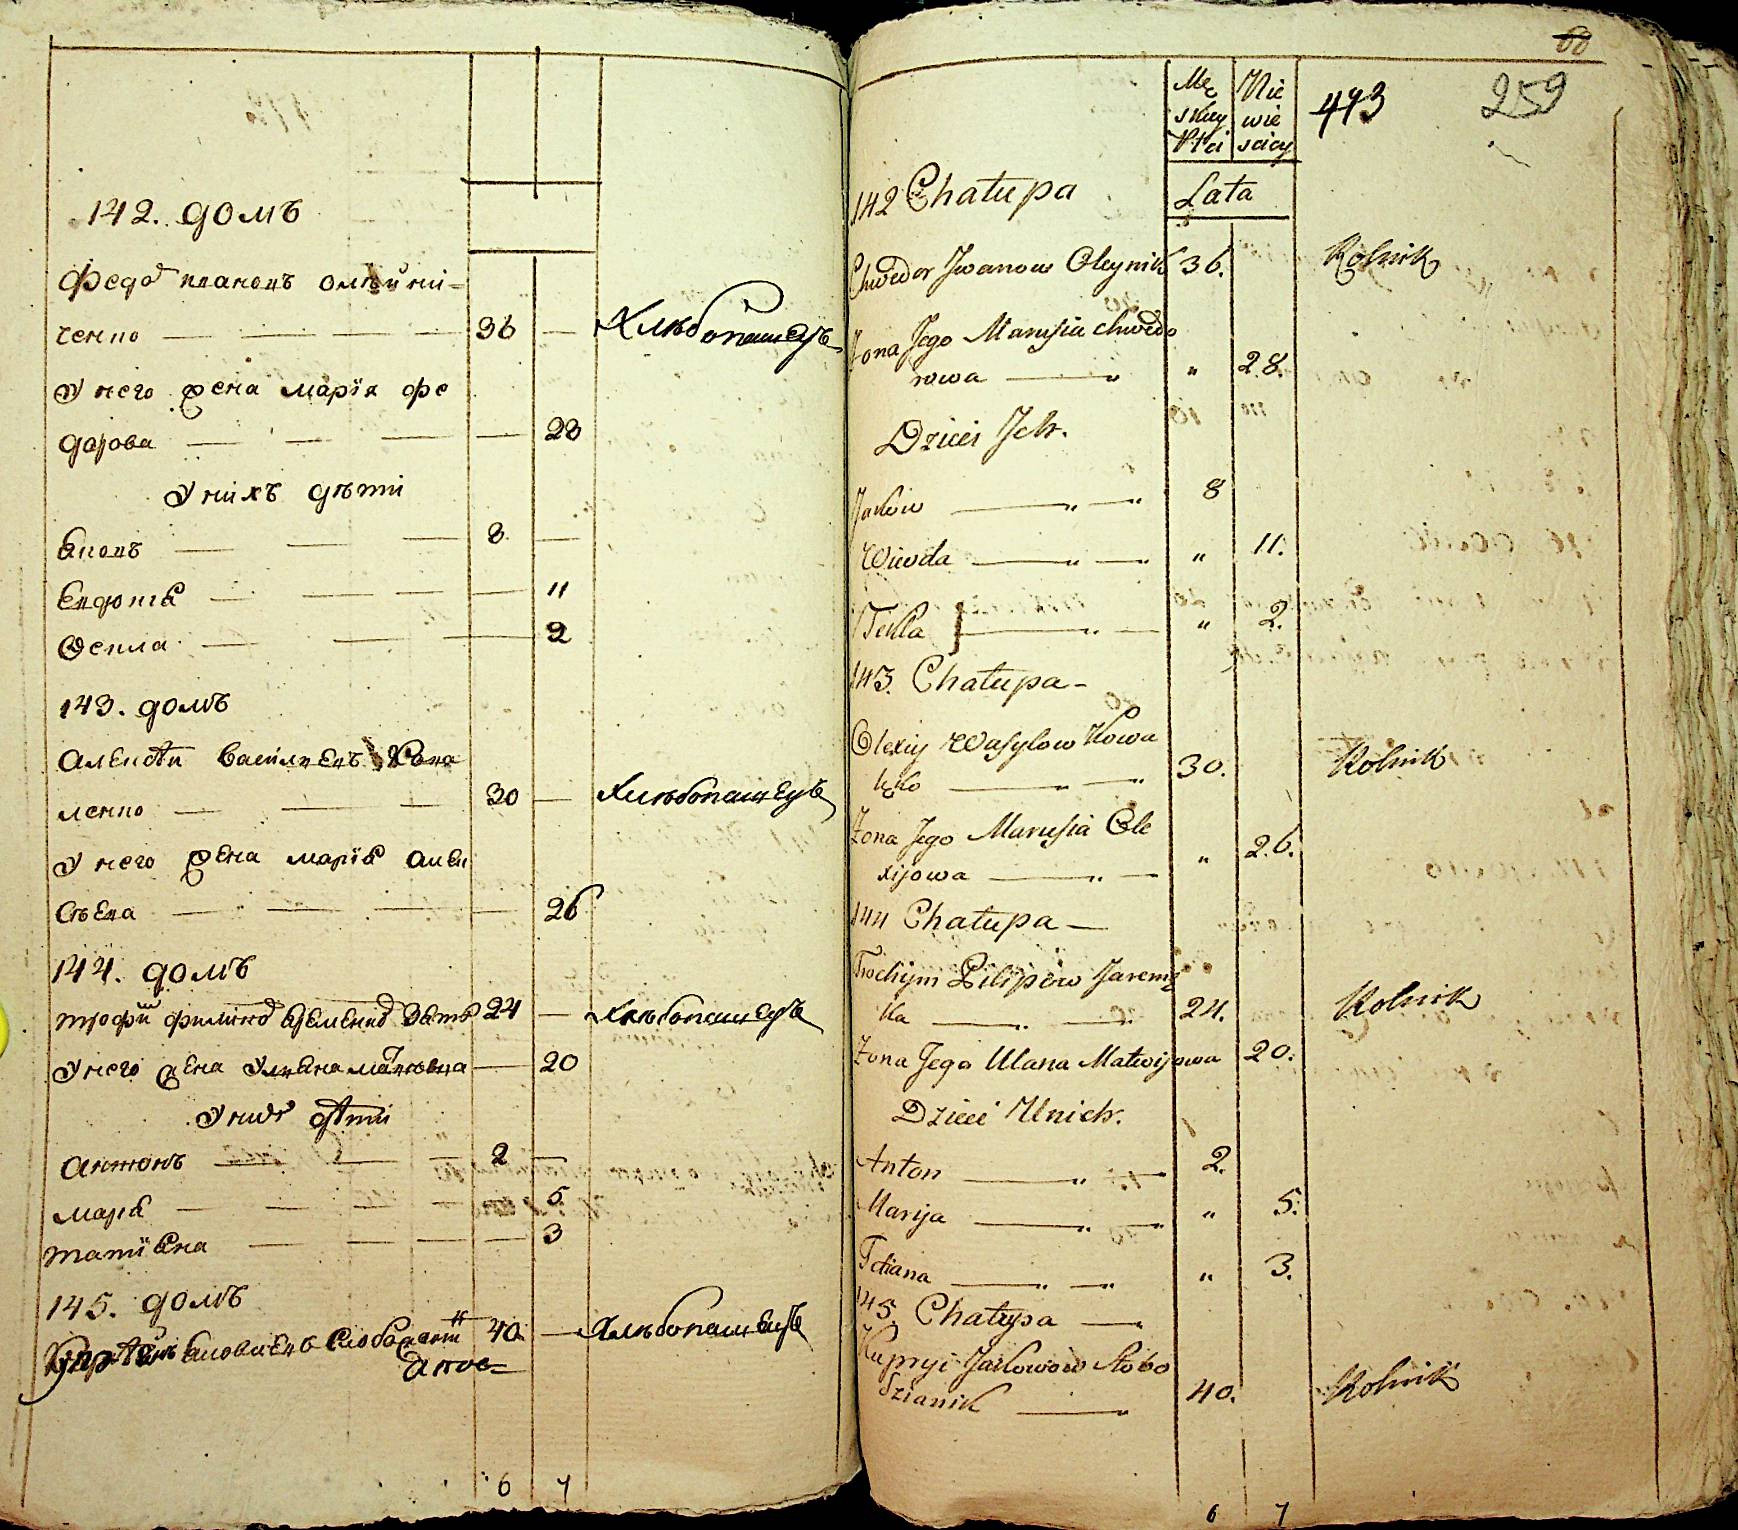 142. домъ
Федоръ ивановъ олѣйни-
ченко 36
Хлѣбопашецъ
У него жена марїя фе
дорова 28
У нихъ дѣти
8
Евдокиа 11
Фекла 2
143. домъ
Алексѣй василиевъ Кова
ленко 30
Хлѣбопашецъ
У него жена марїа алек
сѣева 26
144. домъ
24
Хлѣбопашецъ
У него жена 20
У нихъ дѣти
антонъ 2
мариа 5
татиѣна 3
145. домъ
40
Хлѣбопашецъ
6 7
60
Mę Nie
skiey wie
Płci sciey
443
259
142 Chałupa
Lata
Chwedor Jwanow Oleynik 36.
Rolnik
Żona Jego Marusia Chwedo
rowa " 28.
Dzieci Jch.
Jakow 8
Wiewda " 11.
Tekla " 2.
143. Chałupa
Olexiy Wasylow Kowa
lęko 30.
Rolnik
Żona Jego Marusia Ole
xijowa " 26.
144 Chałupa
Trochym Pilipow Jaremę
ka 24.
Rolnik
Żona Jego Ulana Matwijowa 20.
Dzieci Unich.
Anton 2.
Marija " 5.
Tetiana " 3.
145. Chałupa
Kupryi Jakowow Słobo
dzianik 40.
Rolnik
6 7